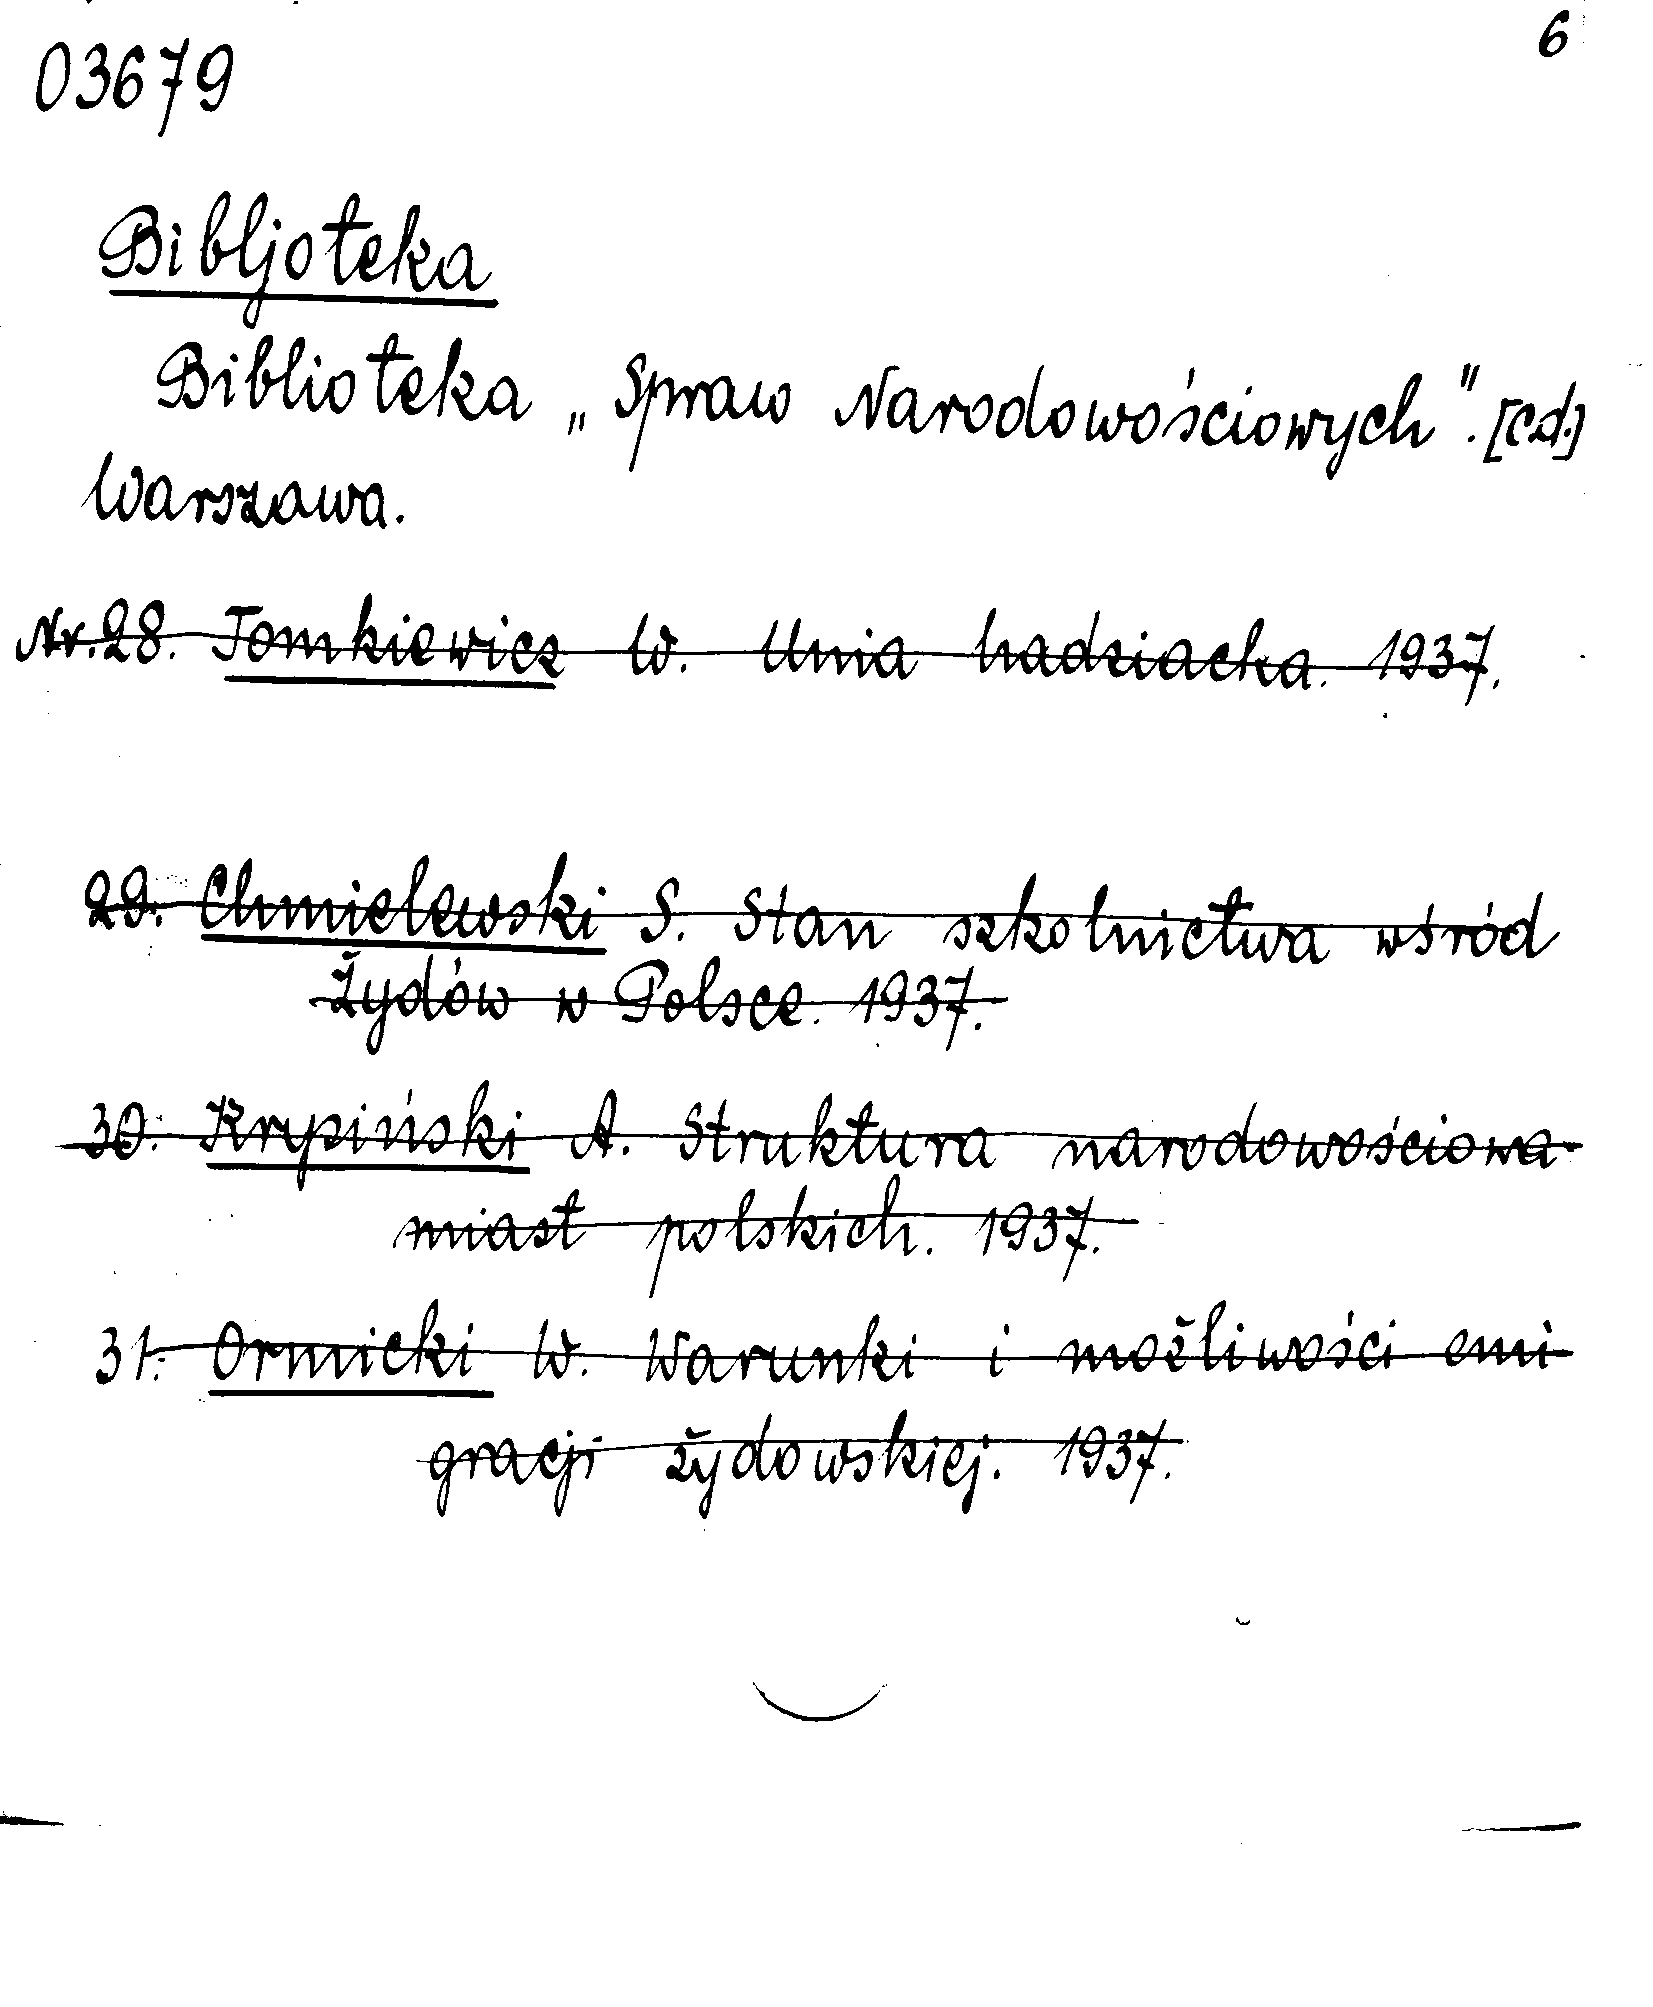 6
03679
Bibljoteka
Biblioteka „Spraw Narodowościowych". [cd.]
Warszawa.
Nr. 28. Tomkiewicz W. Unia hadziacka. 1937.
29. Chmielewski S. Stan szkolnictwa wśród
Żydów w Polsce. 1937.
30. Krypiński A. Struktura narodowościowa
miast polskich. 1937.
31. Ormicki W. Warunki i możliwości emi
gracji żydowskiej. 1937.